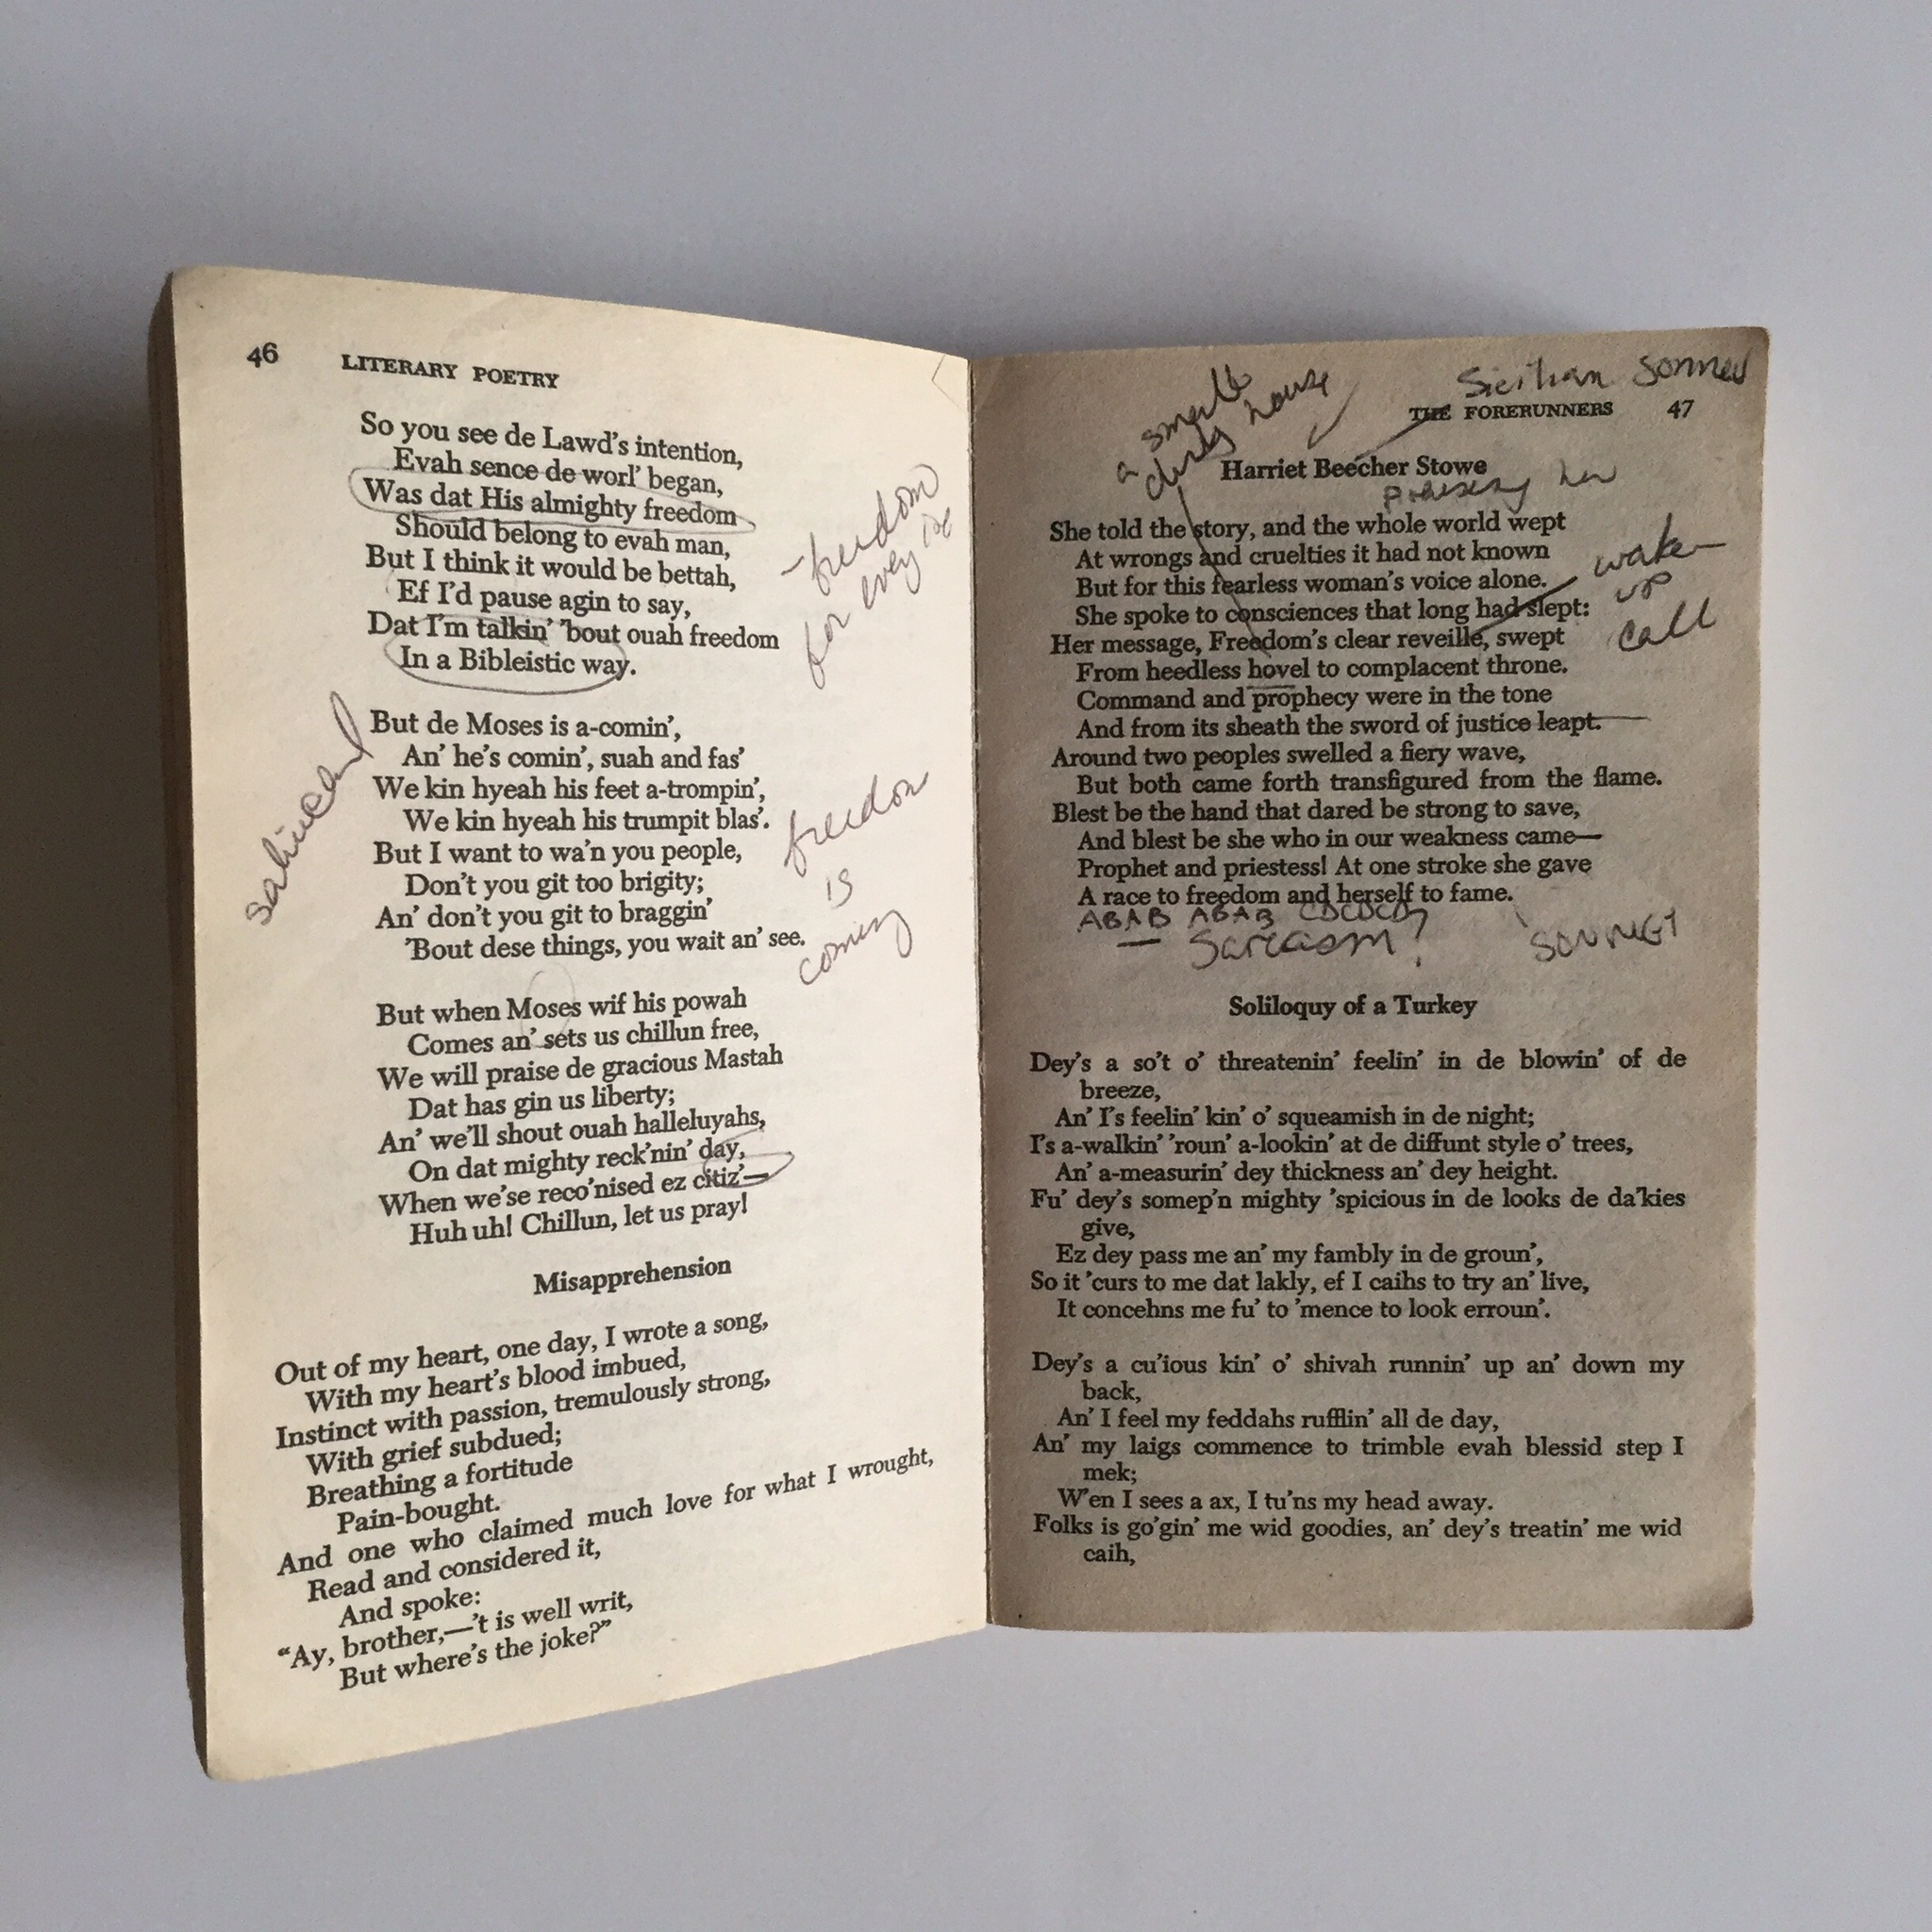 46 LITERARY POETRY
So you see de Lawd's intention,
Evah sence de worl' began,
Was dat His almighty freedom
Should belong to evah man,
But I think it would be bettah,
Ef I'd pause agin to say,
Dat I'm talkin' 'bout ouah freedom
In a Bibleistic way.
- freedom
for every
But de Moses is a-comin',
An' he's comin', suah and fas'
We kin hyeah his feet a-trompin',
We kin hyeah his trumpit blas'.
But I want to wa'n you people,
Don't you git too brigity;
An' don't you git to braggin'
'Bout dese things, you wait an' see.
satirical
freedom
is
coming
But when Moses wif his powah
Comes an' sets us chillun free,
We will praise de gracious Mastah
Dat has gin us liberty;
An' we'll shout ouah halleluyahs,
On dat mighty reck'nin' day,
When we'se reco'nised ez citiz'—
Huh uh! Chillun, let us pray!
Misapprehension
Out of my heart, one day, I wrote a song,
With my heart's blood imbued,
Instinct with passion, tremulously strong,
With grief subdued;
Breathing a fortitude
Pain-bought.
And one who claimed much love for what I wrought,
Read and considered it,
And spoke:
"Ay, brother,—'t is well writ,
But where's the joke?"
Sicilian Sonnet
THE FORERUNNERS 47
a small
dirty house
Harriet Beecher Stowe
praising her
She told the story, and the whole world wept
At wrongs and cruelties it had not known
But for this fearless woman's voice alone.
She spoke to consciences that long had slept:
Her message, Freedom's clear reveille, swept
From heedless hovel to complacent throne.
Command and prophecy were in the tone
And from its sheath the sword of justice leapt.
Around two peoples swelled a fiery wave,
But both came forth transfigured from the flame.
Blest be the hand that dared be strong to save,
And blest be she who in our weakness came—
Prophet and priestess! At one stroke she gave
A race to freedom and herself to fame.
wake
up
call
ABAB ABAB CDCDCD
— Sarcasm?
SONNET
Soliloquy of a Turkey
Dey's a so't o' threatenin' feelin' in de blowin' of de
breeze,
An' I's feelin' kin' o' squeamish in de night;
I's a-walkin' 'roun' a-lookin' at de diffunt style o' trees,
An' a-measurin' dey thickness an' dey height.
Fu' dey's somep'n mighty 'spicious in de looks de da'kies
give,
Ez dey pass me an' my fambly in de groun',
So it 'curs to me dat lakly, ef I caihs to try an' live,
It concehns me fu' to 'mence to look erroun'.
Dey's a cu'ious kin' o' shivah runnin' up an' down my
back,
An' I feel my feddahs rufflin' all de day,
An' my laigs commence to trimble evah blessid step I
mek;
W'en I sees a ax, I tu'ns my head away.
Folks is go'gin' me wid goodies, an' dey's treatin' me wid
caih,